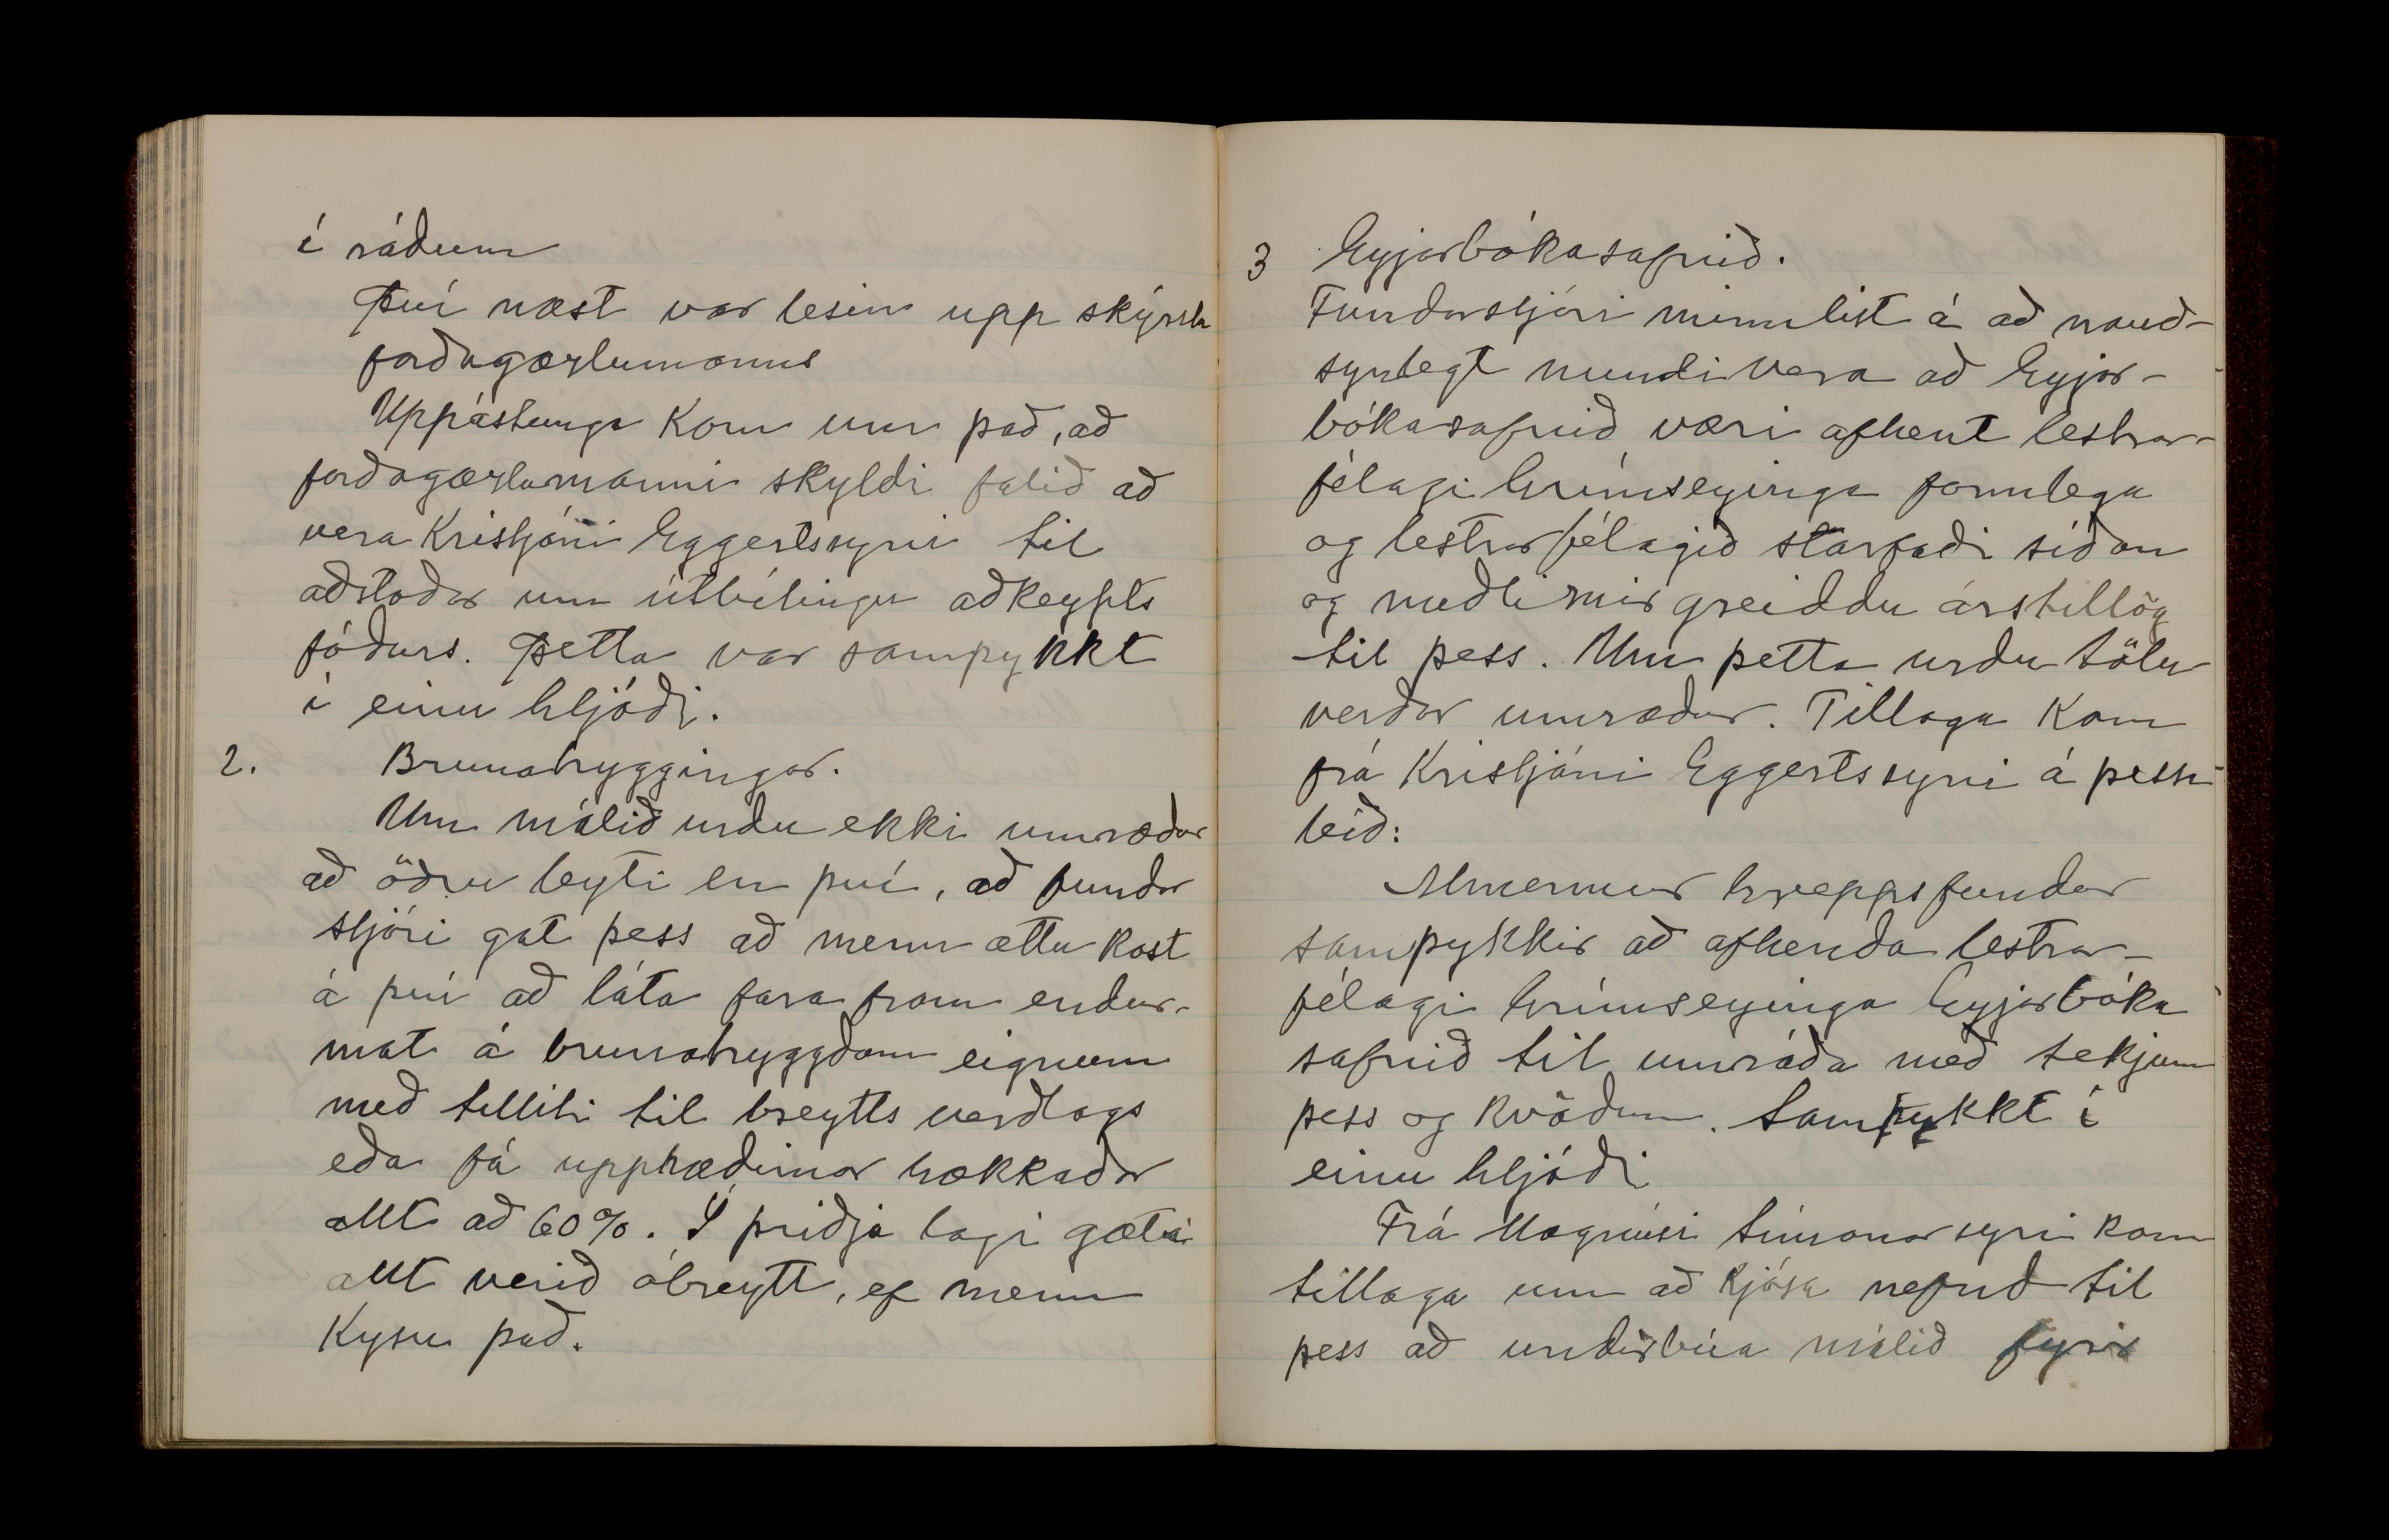 í ráðum
Því næst var lesin upp skýrsla
forðagæzlumanns
Uppástunga kom um það, að
forðagæzlumanni skyldi falið að
vera Kristjáni Eggertssyni til
aðstoðar um útbýtingu aðkeypts
fóðurs. Þetta var samþykkt
í einu hljóði.
2. Brunatryggingar.
Um málið urðu ekki umræður
að öðru leyti en því, að fundar
stjóri gat þess að menn ættu kost
á því að láta fara fram endur-
mat á brunatryggðum eignum
með tilliti til breytts verðlags
eða fá upphæðirnar hækkaðar
allt að 60%. Í þriðja lagi gæti
allt verið óbreytt, ef menn
kysu það.
3 Eyjarbókasafnið.
Fundarstjóri minntist á að nauð-
synlegt mundi vera að Eyjar-
bókasafnið væri afhent lestrar-
félagi Grímseyinga formlega
og lestrarfélagið starfaði síðan
og meðlimir greiddu árstillög
til þess. Um þetta urðu tölu
verðar umræður. Tillaga kom
frá Kristjáni Eggertssyni á þessa
leið:
Almennur hreppsfundur
samþykkir að afhenda lestrar-
félagi Grímseyinga Eyjarbóka
safnið til umráða með tekjum
þess og kvöðum. Samþykkt í
einu hljóði
Frá Magnúsi Símonarsyni kom
tillaga um að kjósa nefnd til
þess að undirbúa málið fyrir